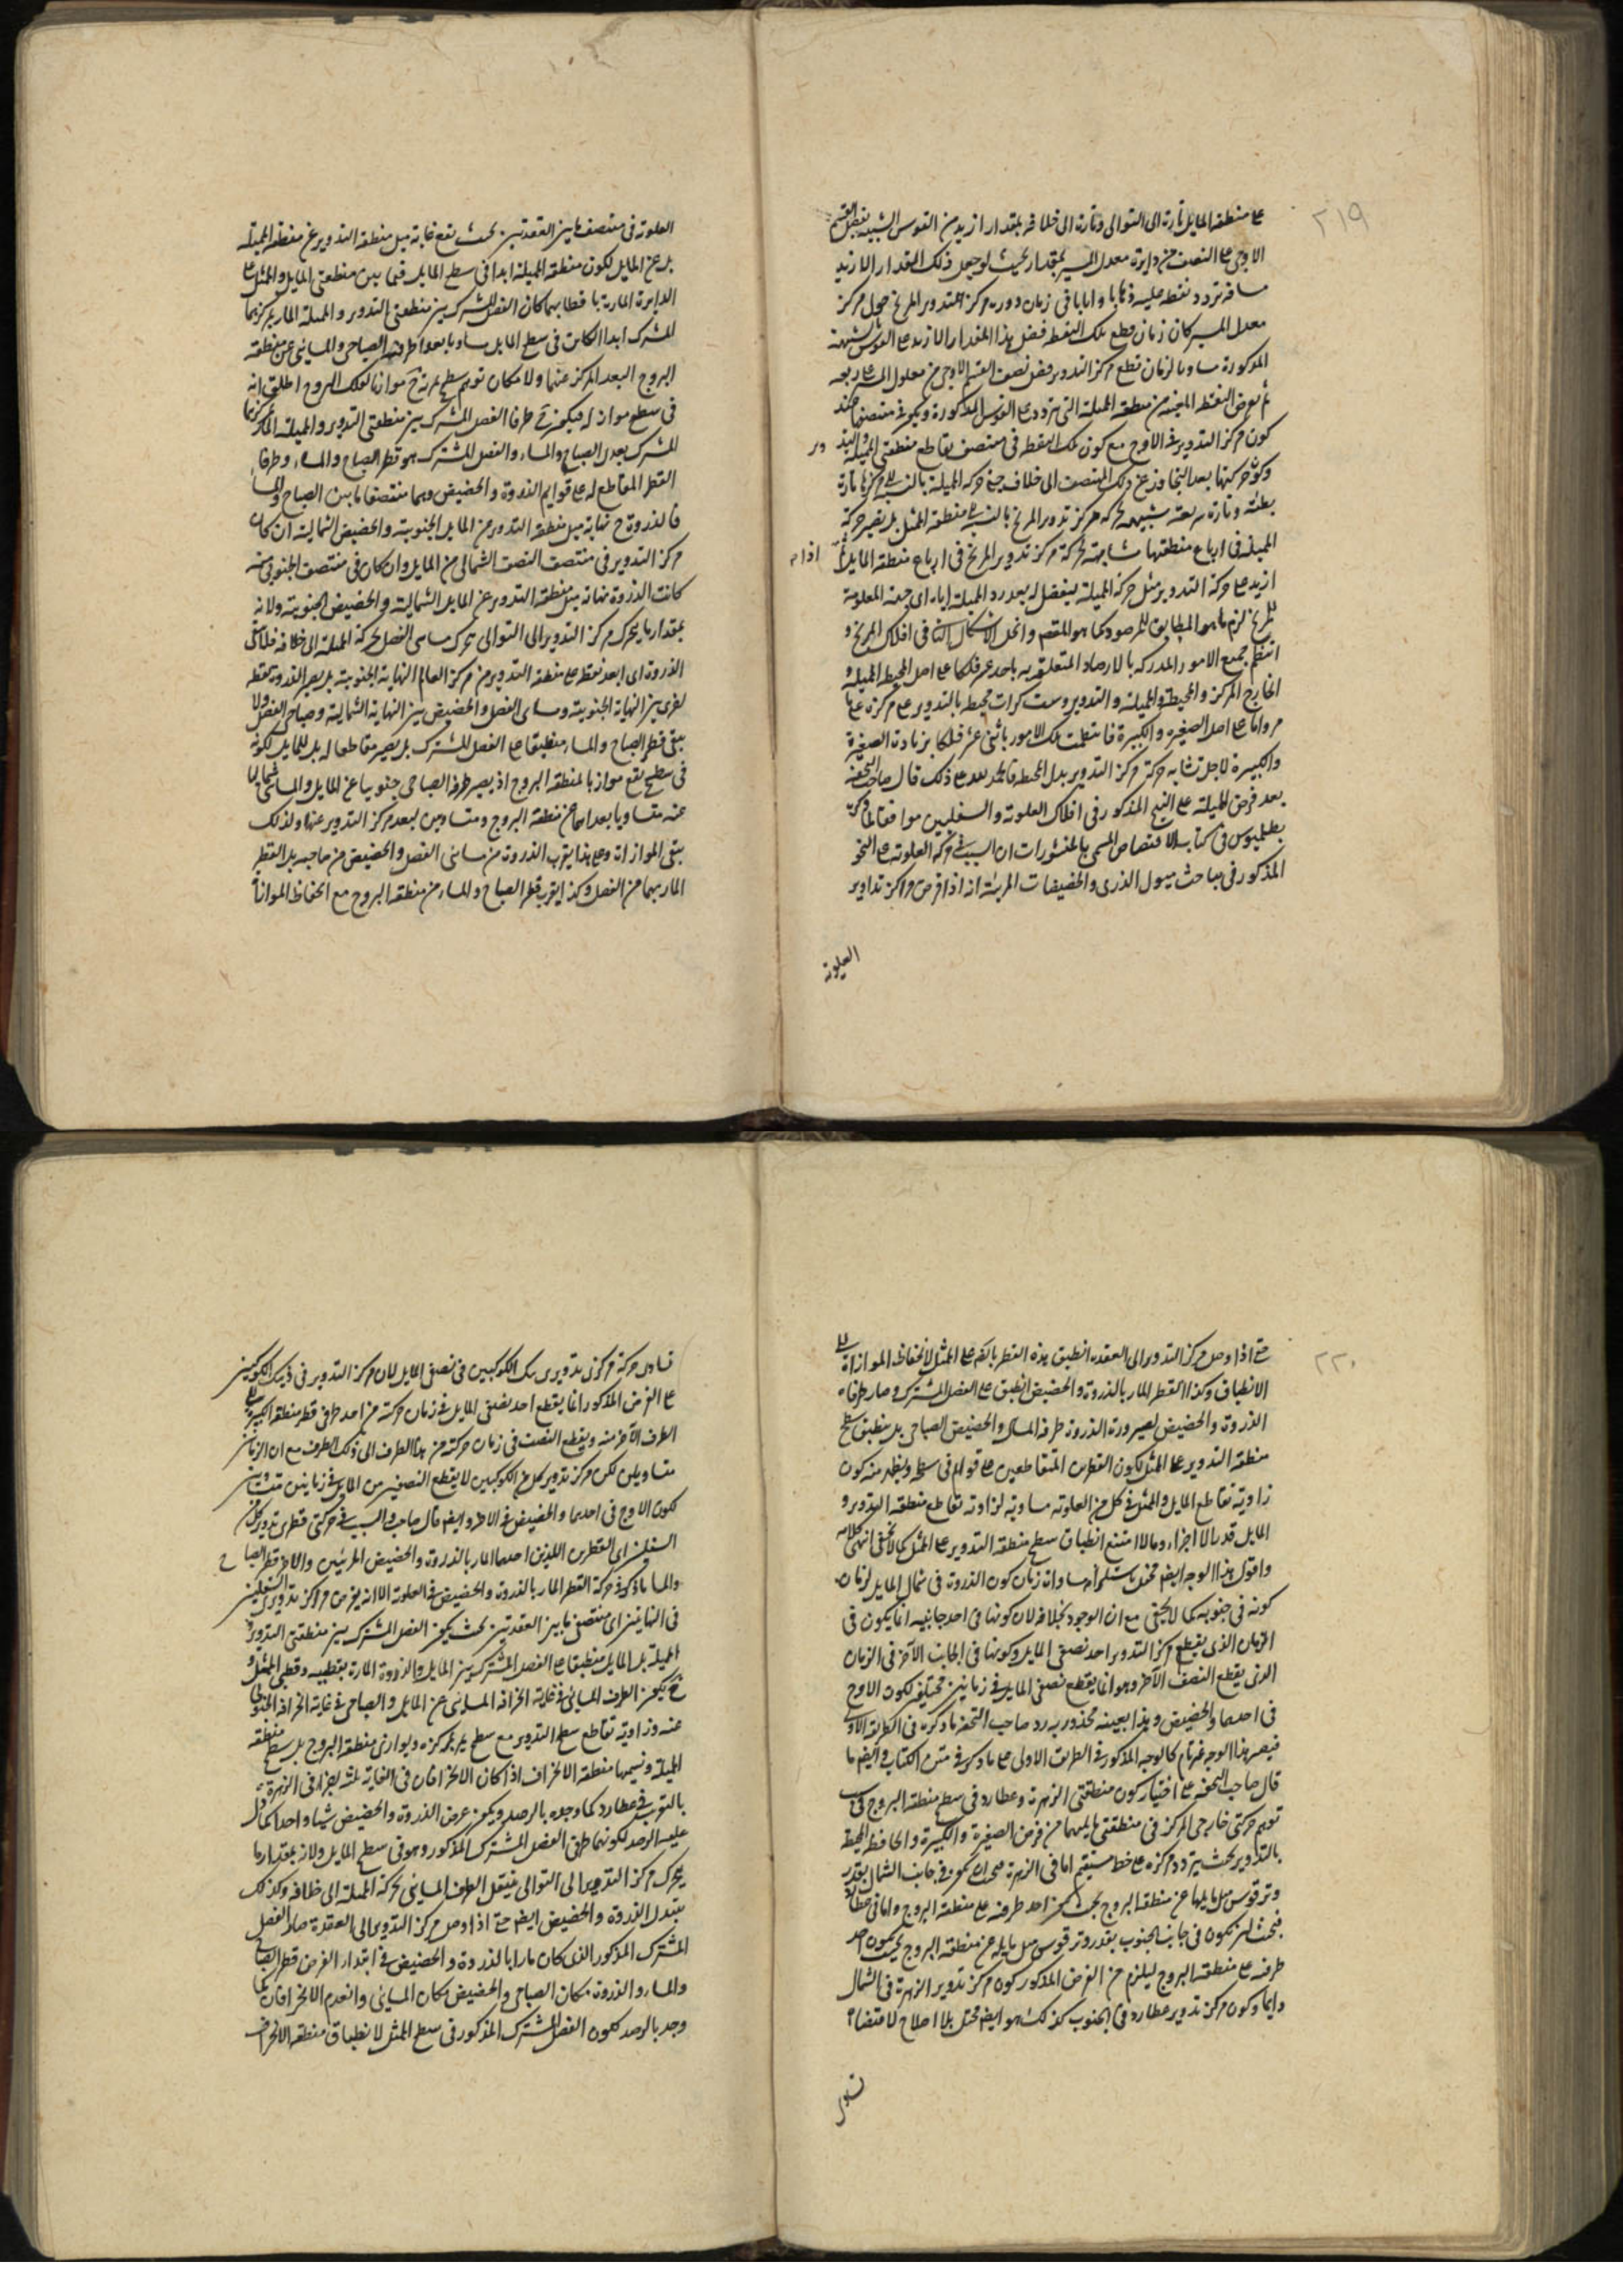 ٢١٩
على منطقة المايل تارة الى التوالى وتارة الى خلافه بمقدار ازيد من القوس الشبيه بفضل القسم
الاوجى على النصف من دايرة معدل المسير بمقدار بحيث لو جعل ذلك المقدار الازيد
مسافة تردد نقطة عليه ذهابا وايابا فى زمان دورة مركز التدوير المريخ حول مركز
معدل المسير كان زمان قطع تلك النقطة فضل هذا المقدار الازيد على القوس الشبيهة
المذكورة مساويا لزمان قطع مركز التدوير فضل نصف القسم الاوجى من معدل المسير على ربعه
ثم نعرض النقطة المعينة من منطقة المميلة التى تتردد على القوس المذكورة ويكون فى منتصفها عند
كون مركز التدوير فى الاوج مع كون تلك النقطة فى منتصف تقاطع منطقتى المميلة والتدوير
وكون حركتها بعد التجاوز عن ذلك المنتصف الى خلاف جهة حركة المميلة بالنسبة الى مركزها تارة
بطئة وتارة سريعة شبيهة بحركة مركز تدوير المريخ بالنسبة الى منطقة الممثل بل يصير حركة
المميلة فى ارباع منطقتها مشابهة لحركة مركز تدوير المريخ فى ارباع منطقة المايل
اذا
ازيد على حركة التدوير مثل حركة المميلة ليفضل له بعد رد المميلة اياه اى حصة المعلومة
للمريخ لزم ما هو المطابق للمرصود كما هو المقصد وانحل الاشكال الثانى فى افلاك المريخ و
انتظم جميع الامور المدركة بالارصاد المتعلقة به باحد عشر فلكا على اصل المحيطة المميلة و
الخارج المركز والمحيطة والمميلة والتدوير وست كرات محيطة بالتدوير على مركزه على ما
مر واما على اصل الصغيرة والكبيرة فانتظمت تلك الامور باثنى عشر فلكا بزيادة الصغيرة
والكبيرة لاجل تشابه حركة مركز التدوير بدل المحيطة فالحمد لله على ذلك قال صاحب التحفة
بعد فرض المميلة على النهج المذكور فى افلاك العلوية والسفليين موافقا لما ذكره
بطلميوس فى كتاب الاقتصاص المسمى بالمنشورات ان السبب فى حركة العلوية على النحو
المذكور فى مباحث ميول الذرى والحضيضات المرئية انه اذا فرض مراكز تداوير
العلوية
العلوية فى منتصف ما بين العقدتين بحيث يقع غاية ميل منطقة التدوير عن منطقة المميلة
بل عن المايل لكون منطقة المميلة ابدا فى سطح المايل فيما بين منطقتى المايل والممثل على
الدايرة المارة باقطابهما كان الفصل المشترك بين منطقتى التدوير والمميلة المار بمركزيهما
المشترك ابدا الكاين فى سطح المايل مساويا بعد طرفيه الصباحى والمسائى عن منطقة
البروج البعد المركز عنها ولامكان توهم سطح يمر به ح موازيا لفلك البروج اطلق انه
فى سطح مواز له فيكون ح طرفا الفصل المشترك بين منطقتى التدوير والمميلة المار بمركزيهما
المشترك بعدى الصباح والمساء والفصل المشترك هو قطر الصباح والمساء وطرفا
القطر المقاطع له على قوايم الذروة والحضيض وهما منتصفا ما بين الصباح والمساء
فالذروة ح نهاية ميل منطقة التدوير من المايل الجنوبية والحضيض الشمالية ان كان
مركز التدوير فى منتصف النصف الشمالى من المايل وان كان فى منتصف الجنوبى منه
كانت الذروة نهاية ميل منطقة التدوير عن المايل الشمالية والحضيض الجنوبية ولانه
بمقدار ما يتحرك مركز التدوير الى التوالى يتحرك مسائى الفصل بحركة المميلة الى خلافه فلا يبقى
الذروة اى ابعد نقطة على منطقة التدوير من مركز العالم النهاية الجنوبية بل يصير الذروة نقطة
اخرى بين النهاية الجنوبية ومسائى الفصل والحضيض بين النهاية الشمالية وصباحى الفصل ولا
يبقى قطر الصباح والمساء منطبقا على الفصل المشترك بل يصير مقاطعا له بل للمايل لكونه
فى سطح يقع موازيا لمنطقة البروج اذ يصير طرفه الصباحى جنوبيا عن المايل والمسائى شماليا
عنه متساويا بعداهما عن منطقة البروج ومتساويين لبعد مركز التدوير عنها ولذلك
يبقى الموازاة وعلى هذا يقرب الذروة من مسائى الفصل والحضيض من صاحبه بل القطر
المار بهما من الفصل وكذا يقرب قطر الصباح والمساء من منطقة البروج مع انحفاظ الموازاة
٢٢٠
حتى اذا وصل مركز التدوير الى العقدة انطبق هذه القطر بالتمام على الممثل لانحفاظ الموازاة الى
الانطباق وكذا القطر المار بالذروة والحضيض انطبق على الفصل المشترك وصار طرفاه
الذروة والحضيض لصيرورة الذروة طرفه المسائى والحضيض الصباحى بل ينطبق سطح
منطقة التدوير على الممثل لكون القطرين المتقاطعين على قوايم فى سطحه ويظهر منه كون
زاوية تقاطع المايل والممثل فى كل من العلوية مساوية لزاوية تقاطع منطقة التدوير و
المايل قدر بالاجزاء ومالا امتنع انطباق سطح منطقة التدوير على الممثل كما لا يخفى انتهى كلامه
واقول هذا الوجه ايضا مختل باستلزامه مساواة زمان كون الذروة فى شمال المايل لزمان
كونه فى جنوبه كما لا يخفى مع ان الوجود بخلافه لان كونها فى احد جانبيه انما يكون فى
الزمان الذى يقطع مركز التدوير احد نصفى المايل وكونها فى الجانب الآخر فى الزمان
الذى يقطع النصف الآخر وهو انما يقطع نصفى المايل فى زمانين مختلفين لكون الاوج
فى احدهما والحضيض وهذا بعينه محذور يرد صاحب التحفة ما ذكره فى الطريقة الاولى
فيصير هذا الوجه غير تام كالوجه المذكور فى الطريق الاولى على ما ذكر فى متن الكتاب وايضا ما
قال صاحب التحفة على اختيار كون منطقتى الزهرة وعطارد فى سطح منطقة البروج فى سبب
توهم حركتى خارجى المركز فى منطقتى مايليهما من فرض الصغيرة والكبيرة والحافظة المحيطة
بالتدوير بحيث يتردد مركزه على خط مستقيم اما فى الزهرة فبحيث يكون فى جانب الشمال بقدر
وتر قوس ميل مايلها عن منطقة البروج بحيث يكون احد طرفيه على منطقة البروج واما فى عطارد
فبحيث يكون فى جانب الجنوب بقدر وتر قوس ميل مايله عن منطقة البروج بحيث يكون احد
طرفيه على منطقة البروج ليلزم من الفرض المذكور كون مركز تدوير الزهرة فى الشمال
دايما وكون مركز تدوير عطارد فى الجنوب كذلك هو ايضا مختل بلا اصلاح لاقتضائه
تساوى
تساوى حركة مركزى تدويرى تلك الكوكبين فى نصفى المايل لان مركز التدوير فى ذينك الكوكبين
على الفرض المذكور انما يقطع احد نصفى المايل فى زمان حركته من احد طرفى قطر منطقة الكبيرة الى
الطرف الآخر منه ويقطع النصف فى زمان حركته من هذا الطرف الى ذلك الطرف مع ان الزمانين
متساويان لكن مركز تدوير كل من الكوكبين لا يقطع النصفين من المايل فى زمانين متساويين
لكون الاوج فى احدهما والحضيض فى الآخر وايضا قال صاحب والسبب فى حركتى قطرى تدوير كل من
السفليين اى القطرين اللذين احدهما المار بالذروة والحضيض المرئيين والآخر قطر الصباح
والمساء ما ذكر فى حركة القطر المار بالذروة والحضيض فى العلوية الا انه يفرض مراكز تدويرى السفليين
فى النهايتين اى منتصفى ما بين العقدتين بحيث يكون الفصل المشترك بين منطقتى التدوير و
المميلة بل المايل منطبقا على الفصل المشترك بين المايل والذروة المارة بقطبيه وقطبى الممثل و
ح يكون الطرف المسائى فى غاية انحرافه المسائى عن المايل والصباحى فى غاية انحرافه الجنوبى
عنه وزاوية تقاطع سطح التدوير مع سطح يمر بمركزه ويوازى منطقة البروج بل سطح منطقة
المميلة ونسميها منطقة الانحراف اذا كان الانحرافان فى الغاية ثلثة اجزاء فى الزهرة و
بالتقريب فى عطارد كما وجده بالرصد ويكون عرض الذروة والحضيض شيئا واحدا كما دل
عليه الرصد لكونهما طرفى الفصل المشترك المذكور وهو فى سطح المايل ولانه بمقدار ما
يتحرك مركز التدوير الى التوالى فينتقل الطرف المسائى بحركة المميلة الى خلافه وكذلك
يتبدل الذروة والحضيض ايضا حتى اذا وصل مركز التدوير الى العقدة صار الفصل
المشترك المذكور الذى كان مارا بالذروة والحضيض فى ابتداء الفرض قطر الصباح
والمساء والذروة مكان الصباحى والحضيض مكان المسائى وانعدم الانحرافان كما
وجد بالرصد لكون الفصل المشترك المذكور فى سطح الممثل لانطباق منطقة الانحراف